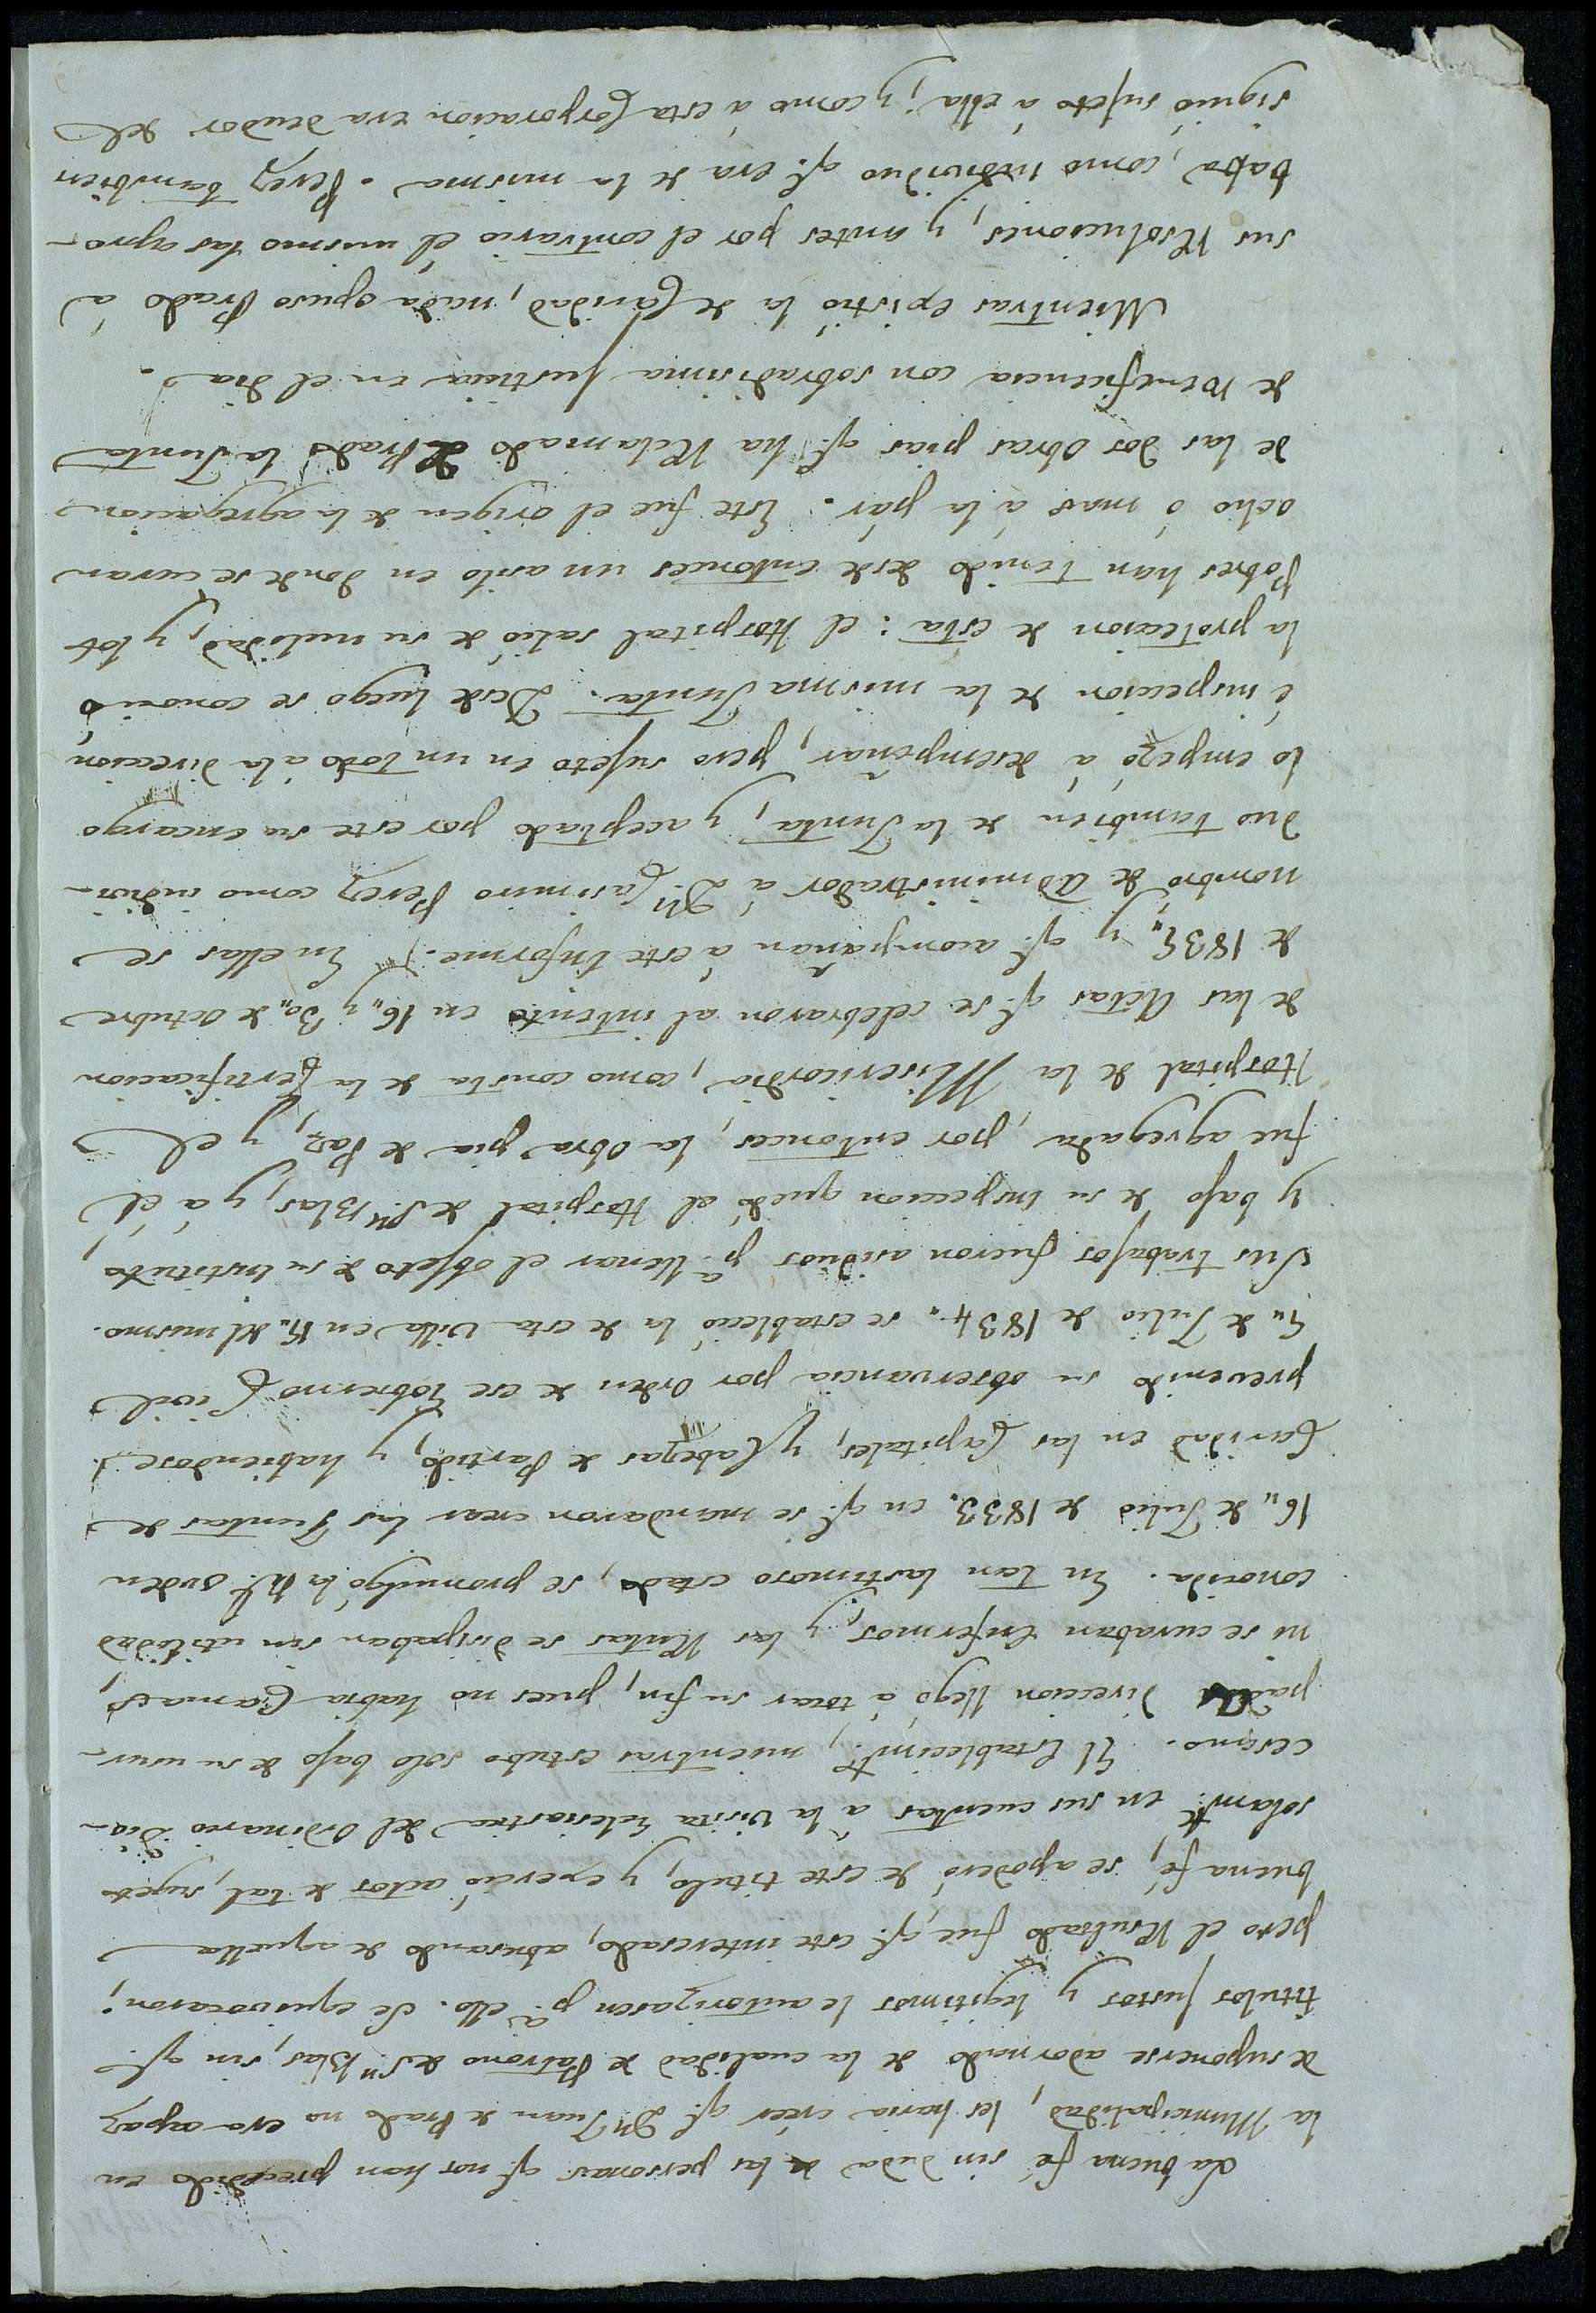 La buena fé sin duda de las personas q.e nos han precedido en
la Municipalidad, les haria creér q.e D.n Juan de Prado no era capaz
de suponerse adornado de la cualidad de Patrono de S.n Blas, sin q.e
titulos justos y legitimos le autorizasen p.a ello. Se equivocaron;
pero el Resultado fue, q.e este interesado, abusando de aquella
buena fé, se apoderó de este titulo, y exerció actos de tal, sugeto
solam.te en sus cuentas á la Visita Eclesiastica del Ordinario Dio-
cesano. El Establecim.to, mientras estubo solo bajo de su usur-
pada direccion llegó á tocar su fin, pues no habia Camas,
ni se curaban Enfermos, y las Rentas se disipaban sin utilidad
conocida. En tan lastimoso estado, se promulgó la R.l orden
16,, de Julio de 1833. en q.e se mandaron crear las Juntas de
Caridad en las Capitales, y Cabezas de Partido, y habiendose
prevenido su observancia por Orden de ese Gobierno Civil
de Julio de 1834,, se estableció la de esta Villa en del mismo.
Sus trabajos fueron asiduos p.a llenar el objeto de su Instituto,
y bajo de su inspeccion quedó el Hospital de S.n Blas, y á él
fue agregada, por entonces, la Obra pia de Paz, y el
Hospital de la Misericordia, como consta de la Certificacion
de las Actas q.e se celebraron al intento en 16,, y 30,, de Octubre
de y q.e acompañan á este Informe. En ellas se
nombró de Administrador á D.n Casimiro Perez como indivi-
duo tambien de la Junta, y aceptado por este su encargo
lo empezó á desempeñar, pero sujeto en un todo á la direccion
é inspeccion de la misma Junta. Desde luego se conoció
la proteccion de ésta: el Hospital salió de su nulidad, y los
Pobres han tenido desde entonces un asilo en donde se curan
ocho ó mas á la pár. Este fue el origen de la agregacion
de las dos Obras pias q.e ha Reclamado de Prado la Junta
de Beneficencia con sobradisima justicia en el dia.
Mientras existió la de Caridad, nada opuso Prado á
sus Resoluciones, y antes por el contrario él mismo las apro-
baba, como individuo q.e era de la misma. Perez tambien
siguió sujeto á ella; y como á esta Corporacion era deudor del